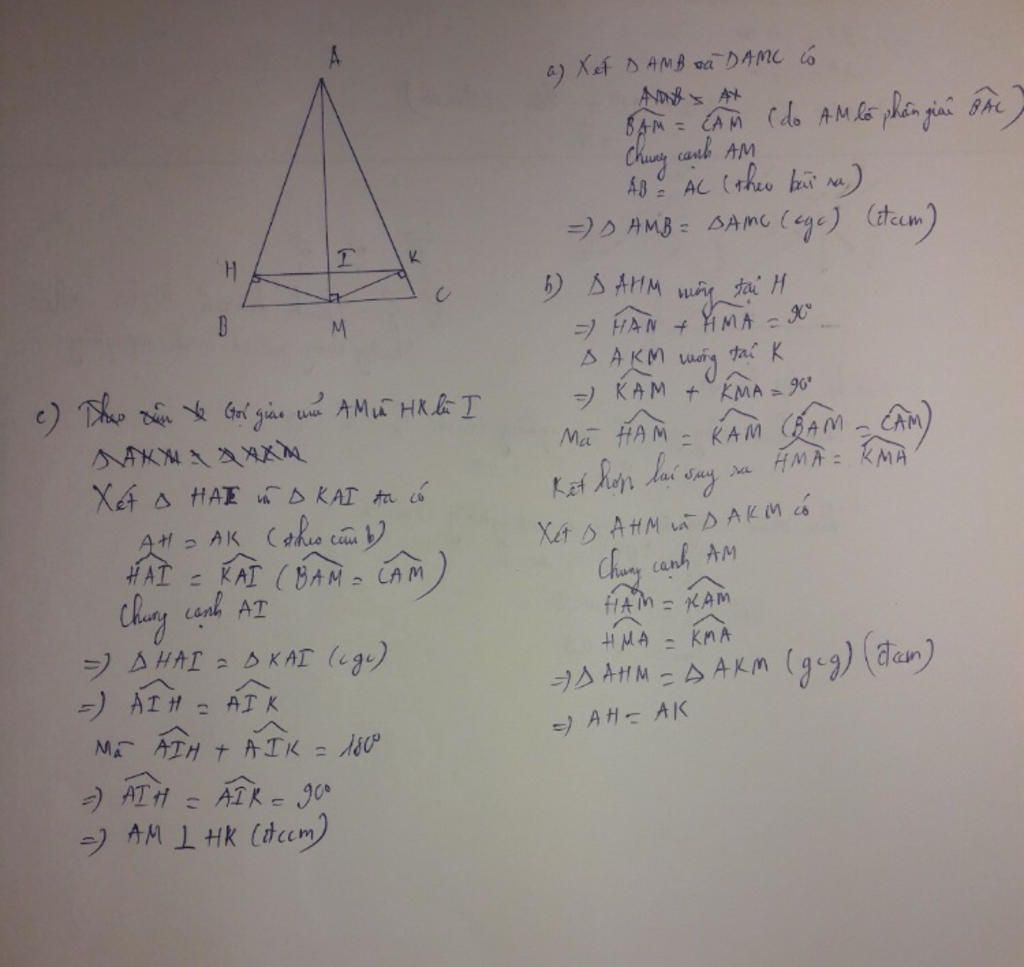 A
H
I
K
B
M
C
a) Xét Δ AMB và Δ AMC có
BAM = CAM (do AM là phân giác BAC)
Chung cạnh AM
AB = AC (theo bài ra)
=> Δ AMB = Δ AMC (cgc) (đccm)
b) Δ AHM vuông tại H
=> HAM + HMA = 90°
Δ AKM vuông tại K
=> KAM + KMA = 90°
Mà HAM = KAM (BAM = CAM)
Kết hợp lại suy ra HMA = KMA
Xét Δ AHM và Δ AKM có
Chung cạnh AM
HAM = KAM
HMA = KMA
=> Δ AHM = Δ AKM (gcg) (đccm)
=> AH = AK
c) Gọi giao của AM và HK là I
Xét Δ HAI và Δ KAI ta có
AH = AK (theo câu b)
HAI = KAI (BAM = CAM)
Chung cạnh AI
=> Δ HAI = Δ KAI (cgc)
=> AIH = AIK
Mà AIH + AIK = 180°
=> AIH = AIK = 90°
=> AM ⊥ HK (đccm)